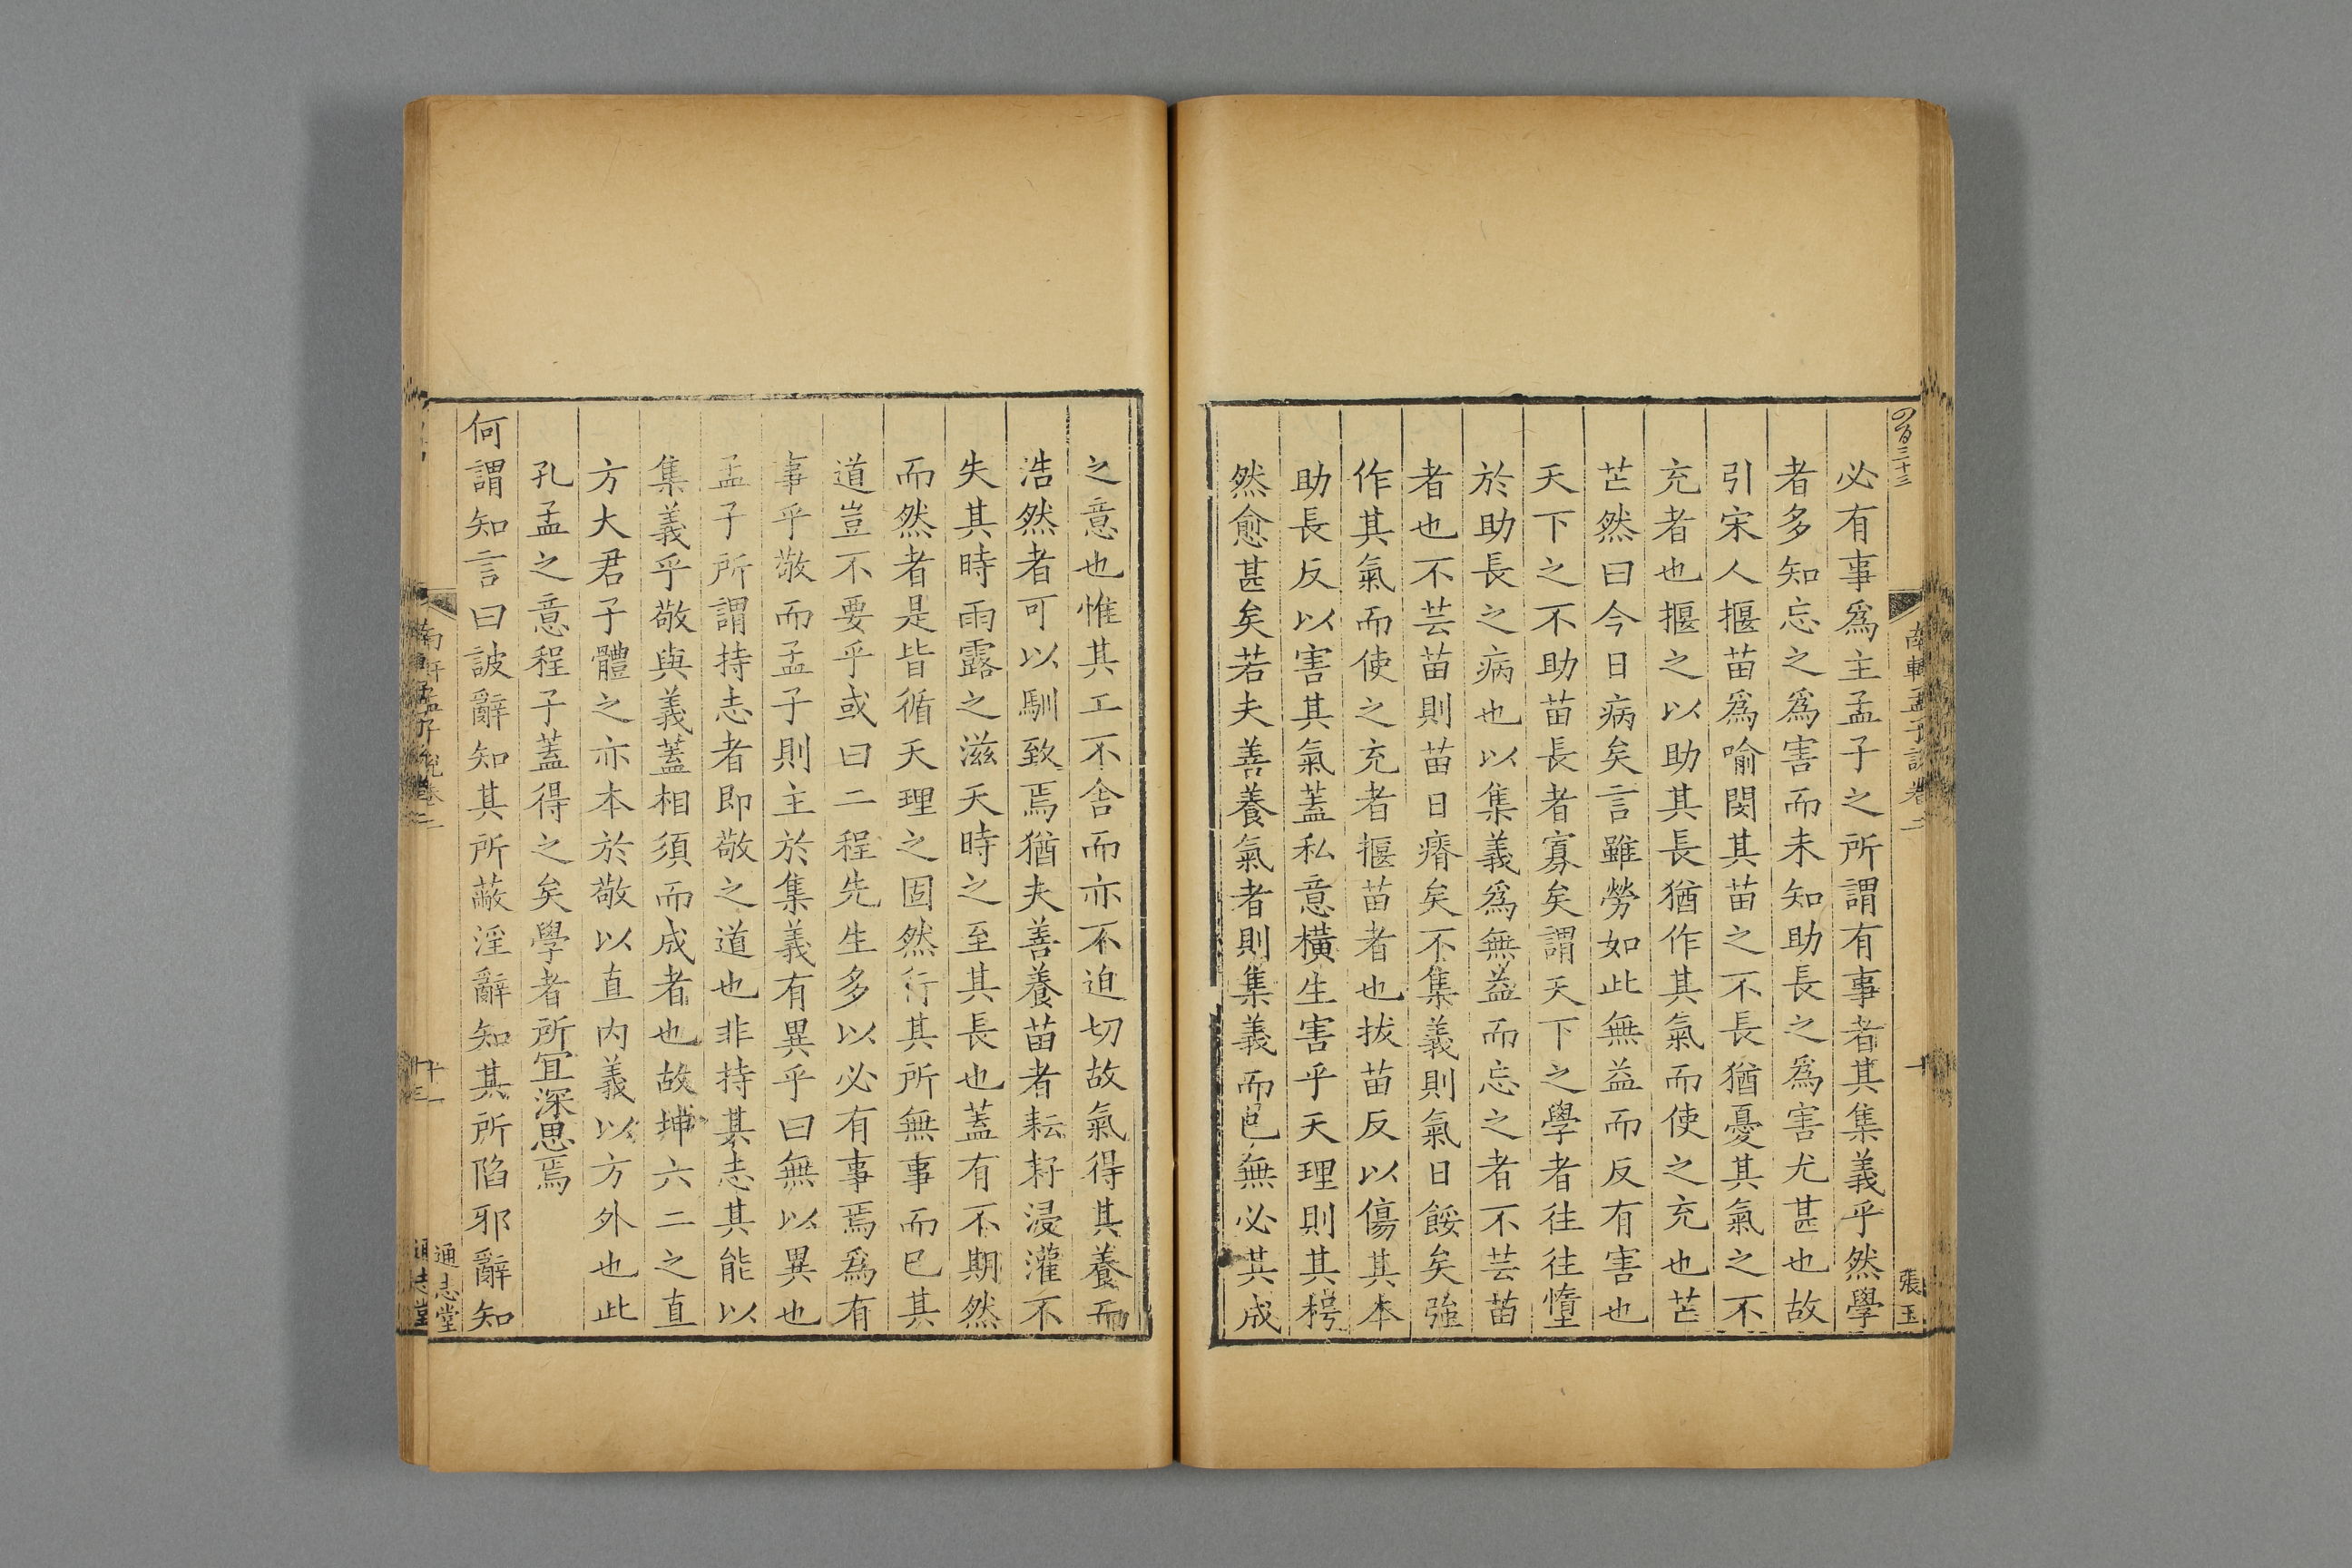 必有事爲主孟子之所謂有事者其集義乎然學
者多知忘之爲害而未知助長之爲害尤甚也故
引宋人揠苗爲喻閔其苗之不長猶憂其氣之不
充者也揠之以助其長猶作其氣而使之充也芒
芒然曰今日病矣言雖勞如此無益而反有害也
天下之不助苗長者寡矣謂天下之學者往往墮
於助長之病也以集義爲無益而忘之者不芸苗
者也不芸苗則苗日瘠矣不集義則氣日餒矣強
作其氣而使之充者揠苗者也拔苗反以傷其本
助長反以害其氣蓋私意橫生害乎天理則其枵
然愈甚矣若夫善養氣者則集義而已無必其成
之意也惟其工不舍而亦不迫切故氣得其養而
浩然者可以馴致焉猶夫善養苗者耘耔浸灌不
失其時雨露之滋天時之至其長也蓋有不期然
而然者是皆循天理之固然行其所無事而已其
道豈不要乎或曰二程先生多以必有事焉爲有
事乎敬而孟子則主於集義有異乎曰無以異也
孟子所謂持志者即敬之道也非持其志其能以
集義乎敬與義蓋相須而成者也故坤六二之直
方大君子體之亦本於敬以直内義以方外也此
孔孟之意程子蓋得之矣學者所宜深思焉
何謂知言曰詖辭知其所蔽淫辭知其所陷邪辭知
南軒孟子說卷二
十
張玉
通志堂